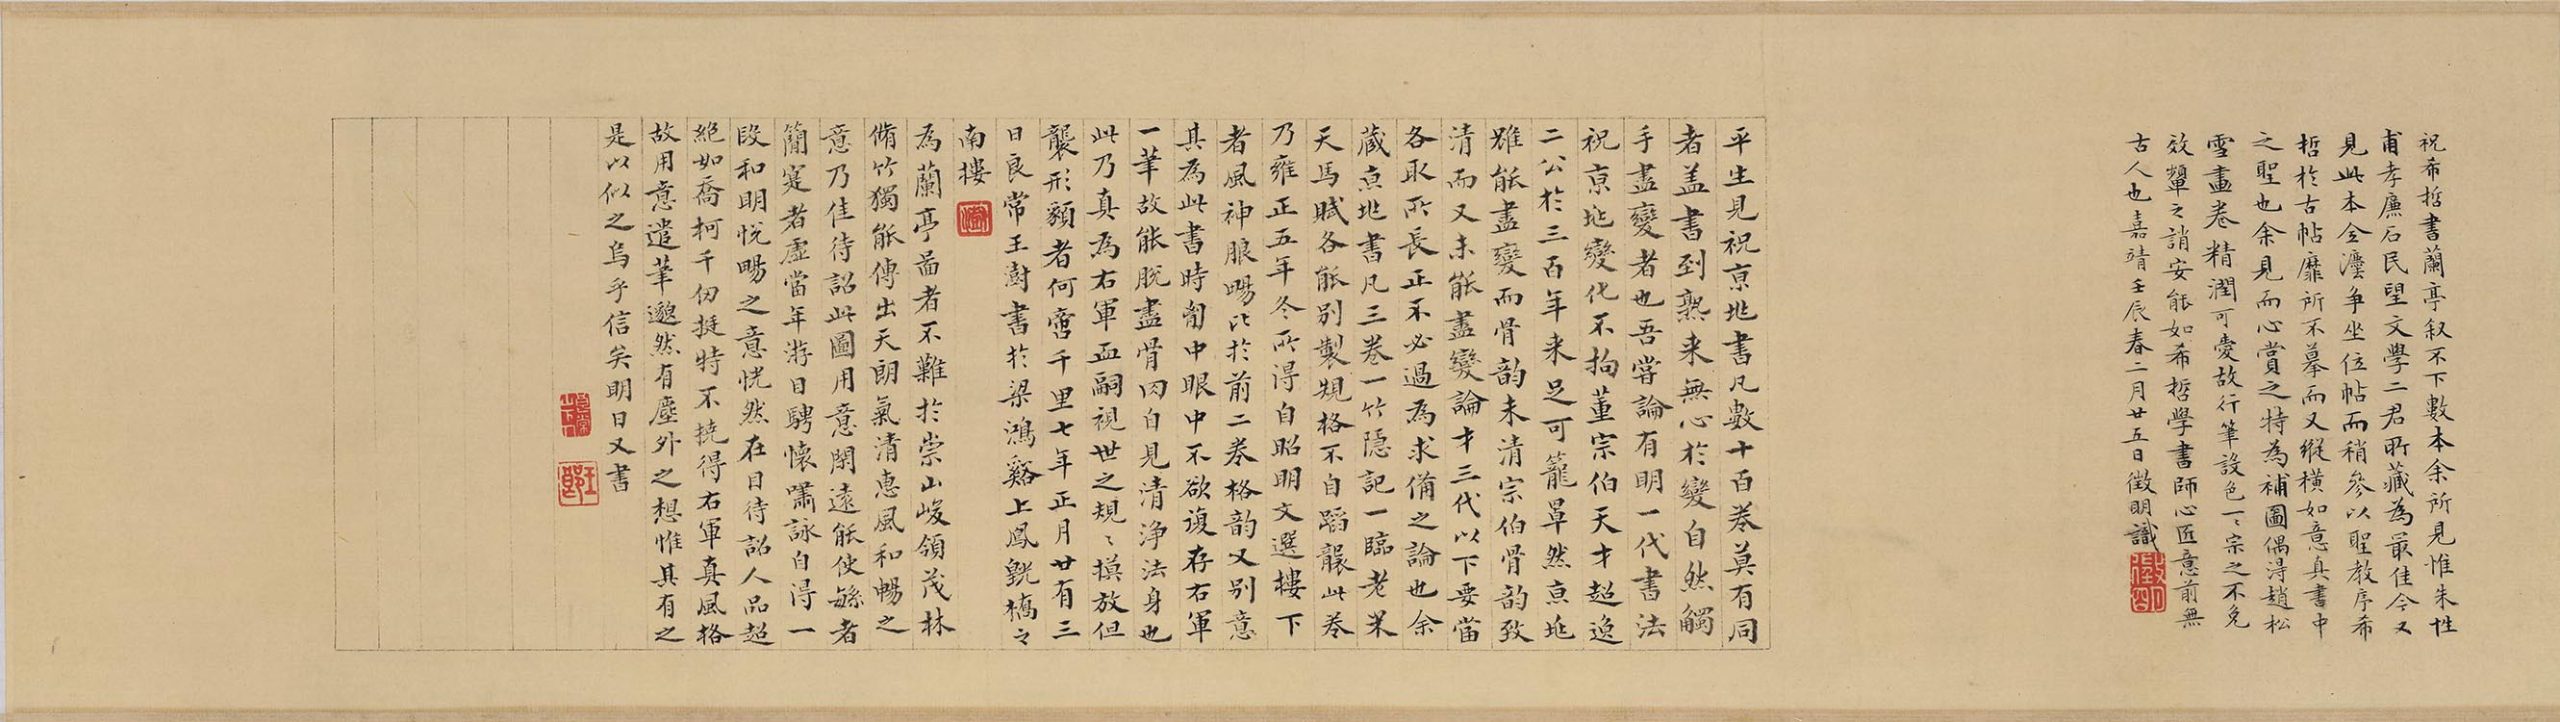 祝希哲書蘭亭叙不下數本余所見惟朱性
甫孝廉石民望文學二君所藏為最佳今又
見此本全瀍争坐位帖而稍參以聖教序希
哲於古帖靡所不摹而又縱橫如意真書中
之聖也余見而心賞之特為補圖偶得趙松
雪畫卷精潤可愛故行筆設色一一宗之不免
效顰之誚安能如希哲學書師心匠意前無
古人也嘉靖壬辰春二月廿五日徵明識
平生見祝京兆書凡數十百卷莫有同
者盖書到熟来無心於變自然觸
手盡變者也吾嘗論有明一代書法
祝京兆變化不拘董宗伯天才超逸
二公於三百年来足可籠罩然京兆
雖能盡變而骨韵未清宗伯骨韵致
清而又未能盡變論才三代以下要當
各取所長正不必過為求備之論也余
藏京兆書凡三卷一竹隱記一臨老米
天馬賦各能別製規格不自蹈襲此卷
乃雍正五年冬所得自昭明文選樓下
者風神服暢比於前二卷格韵又别意
其為此書時匈中眼中不欲復存右軍
一筆故能脫盡骨肉自見清浄法身也
此乃真為右軍血嗣視世之規規摸放但
襲形貌者何啻千里七年正月廿有三
日良常王澍書於梁鴻谿上鳳甃橋之
南樓
為蘭亭啚者不難於崇山峻領茂林
脩竹獨能傳出天朗氣清惠風和暢之
意乃佳待詔此圖用意閑遠能使繇者
簡寔者虛當年游目騁懷嘯詠自得一
段和明悦暢之意恍然在目待詔人品超
絕如喬柯千仞挺特不撓得右軍真風格
故用意遣筆邈然有塵外之想惟其有之
是以似之烏乎信矣明日又書